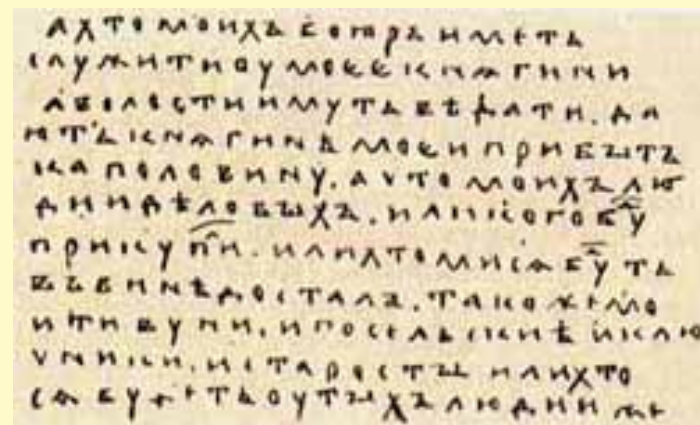 а хто моихъ бояръ иметь
служити оу моее кнѧгини
а волости имуть вѣдати. да
ють кнѧгинѣ моеи прибытъ
ка половину. а что моихъ лю
дии дѣловыхъ. или кого буⷣ
прикупиⷧ. или хто ми сѧ буⷣть
въ винѣ досталъ. такоже мо
и тивуни. и посельскиѣ и клю
чники. и старосты или хто
сѧ будеть оу тыхъ людии же